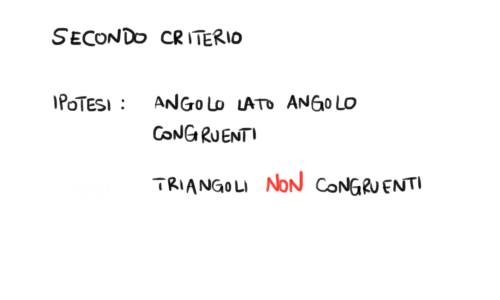 SECONDO CRITERIO
IPOTESI: ANGOLO LATO ANGOLO
CONGRUENTI
TRIANGOLI NON CONGRUENTI